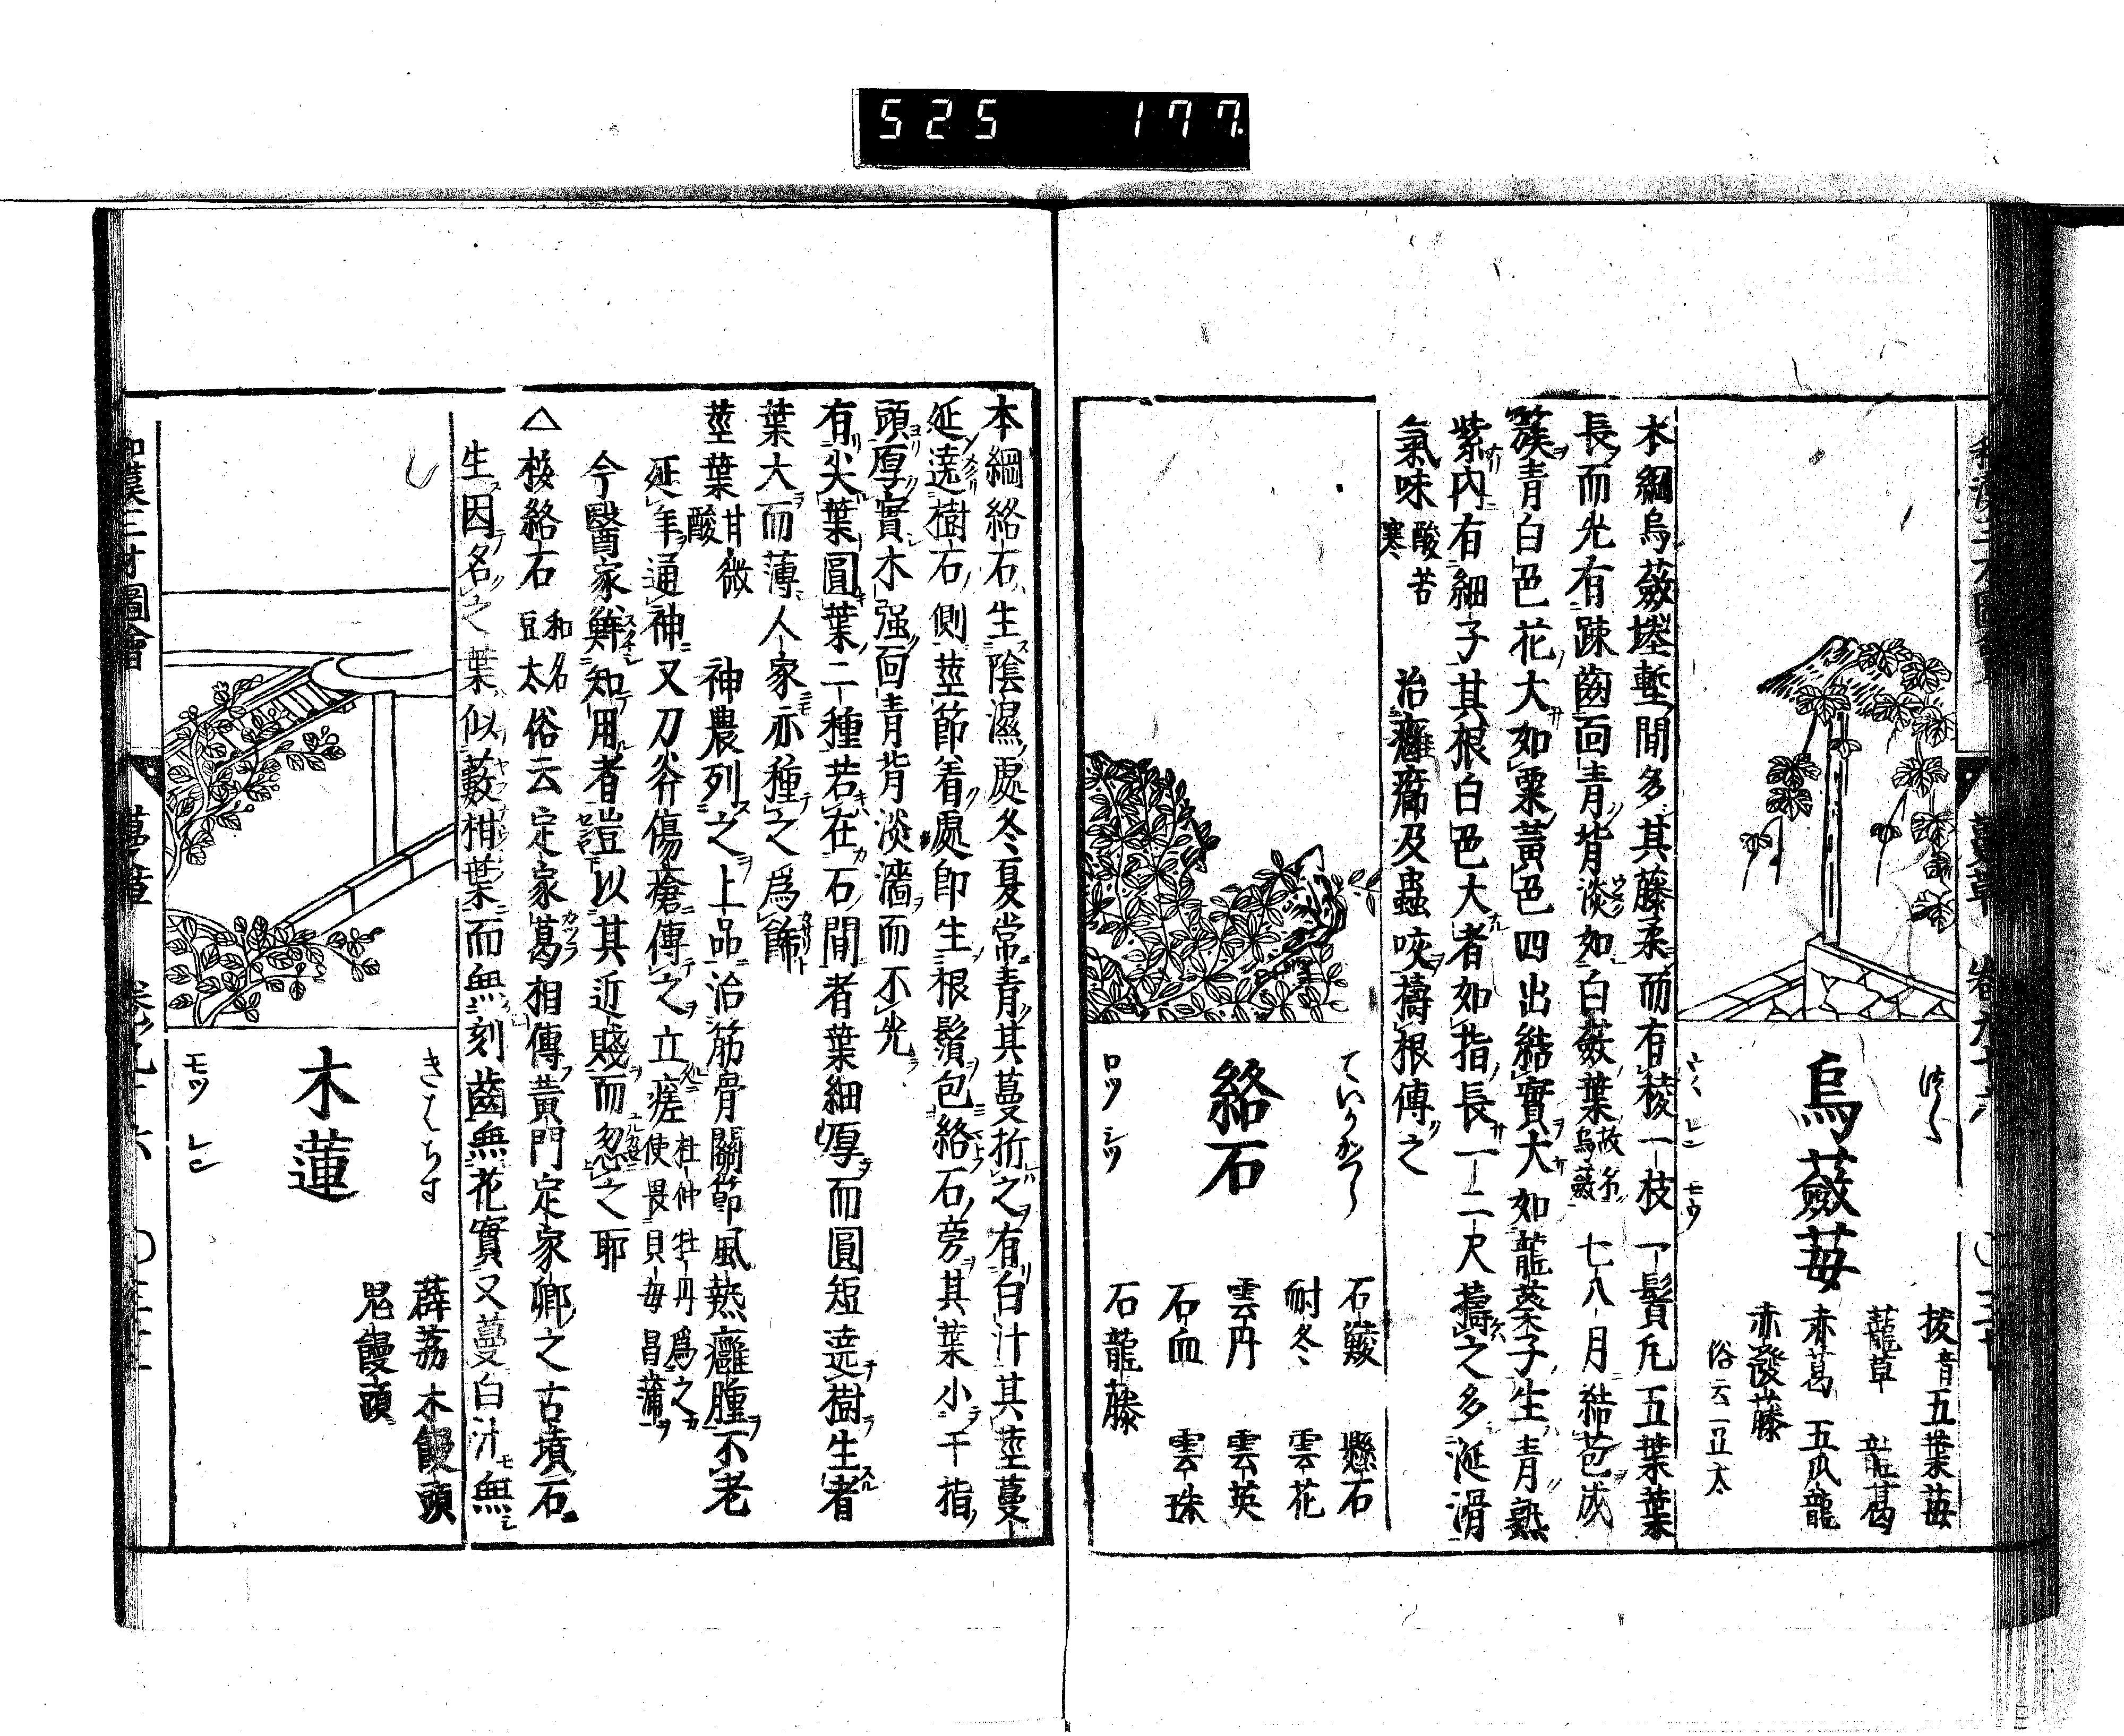 525 177
烏蘞苺
つた
拔 音 五葉苺
蘢草 龍葛
赤葛 五爪龍
赤潑藤
俗云豆太
本綱烏蘞塹間多其藤柔而有稜一枝一鬚凡五葉葉
長而光有疎齒面青背淡如白蘞葉 故名烏蘞 七八月結苞成
簇青白色花大如粟黃色四出結實大如龍葵子生青熟
紫內有細子其根白色大者如指長一二尺擣之多涎滑
氣味 酸苦寒 治癰癤及蟲咬擣根傅之
絡石
ていかかつら
ロツ シツ
石鯪 懸石
耐冬 雲花
雲丹 雲英
石血 雲珠
石龍藤
本綱絡石生陰濕處冬夏常青其蔓折之有白汁其莖蔓
延遶樹石側莖節着處即生根鬚包絡石旁其葉小于指
頭厚實木强面青背淡濇而不光
有尖葉圓葉二種若在石間者葉細厚而圓短遶樹生者
葉大而薄人家亦種之爲飾
莖葉 甘微酸 神農列之上品治筋骨關節風熱癰腫不老
延年通神又刀斧傷瘡傅之立瘥 杜仲牡丹爲之使畏貝母昌蒲
今醫家鮮知用者豈以其近賤而忽之耶
△按絡石 和名豆太 俗云定家葛相傳黃門定家卿之古墳石
生因名之葉似藪柑葉而無刻齒無花實又蔓白汁無
木蓮
きはちす
モツ レン
薜荔 木饅頭
鬼饅頭
和漢三才圖會 蔓草 卷九十六